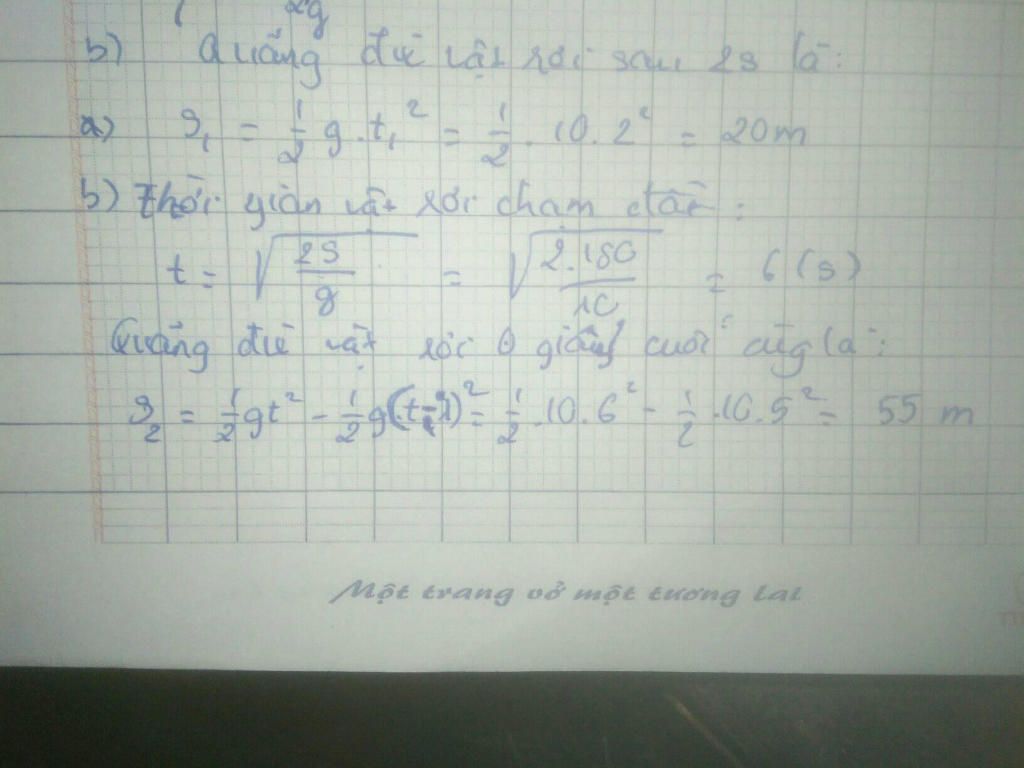 2g
b) Quãng đườ vật rơi sau 2s là:
a) S₁ = 1/2 g.t₁² = 1/2 . 10.2² = 20m
b) thời gian vật rơi chạm đất:
t = √(2S/g) = √(2.180/10) = 6 (s)
Quãng đườ vật rơi giây cuối cùg là:
S₂ = 1/2 gt² - 1/2 g(t-1)² = 1/2 .10.6² - 1/2 .10.5² = 55 m
Một trang vở một tương lai